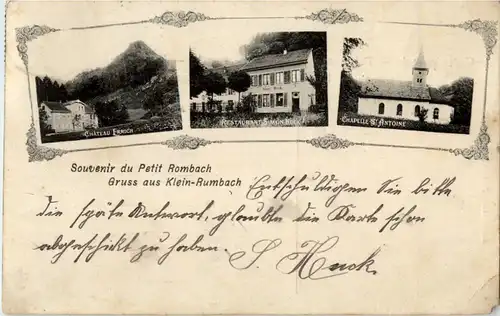 CHÂTEAU
RESTAURANT SIMON
CHAPELLE ST ANTOINE
Souvenir du Petit Rombach
Gruss aus Klein-Rumbach
Entschuldigen Sie bitte
die späte Antwort, glaubte die Karte schon
abgeschickt zu haben.
S. Huck